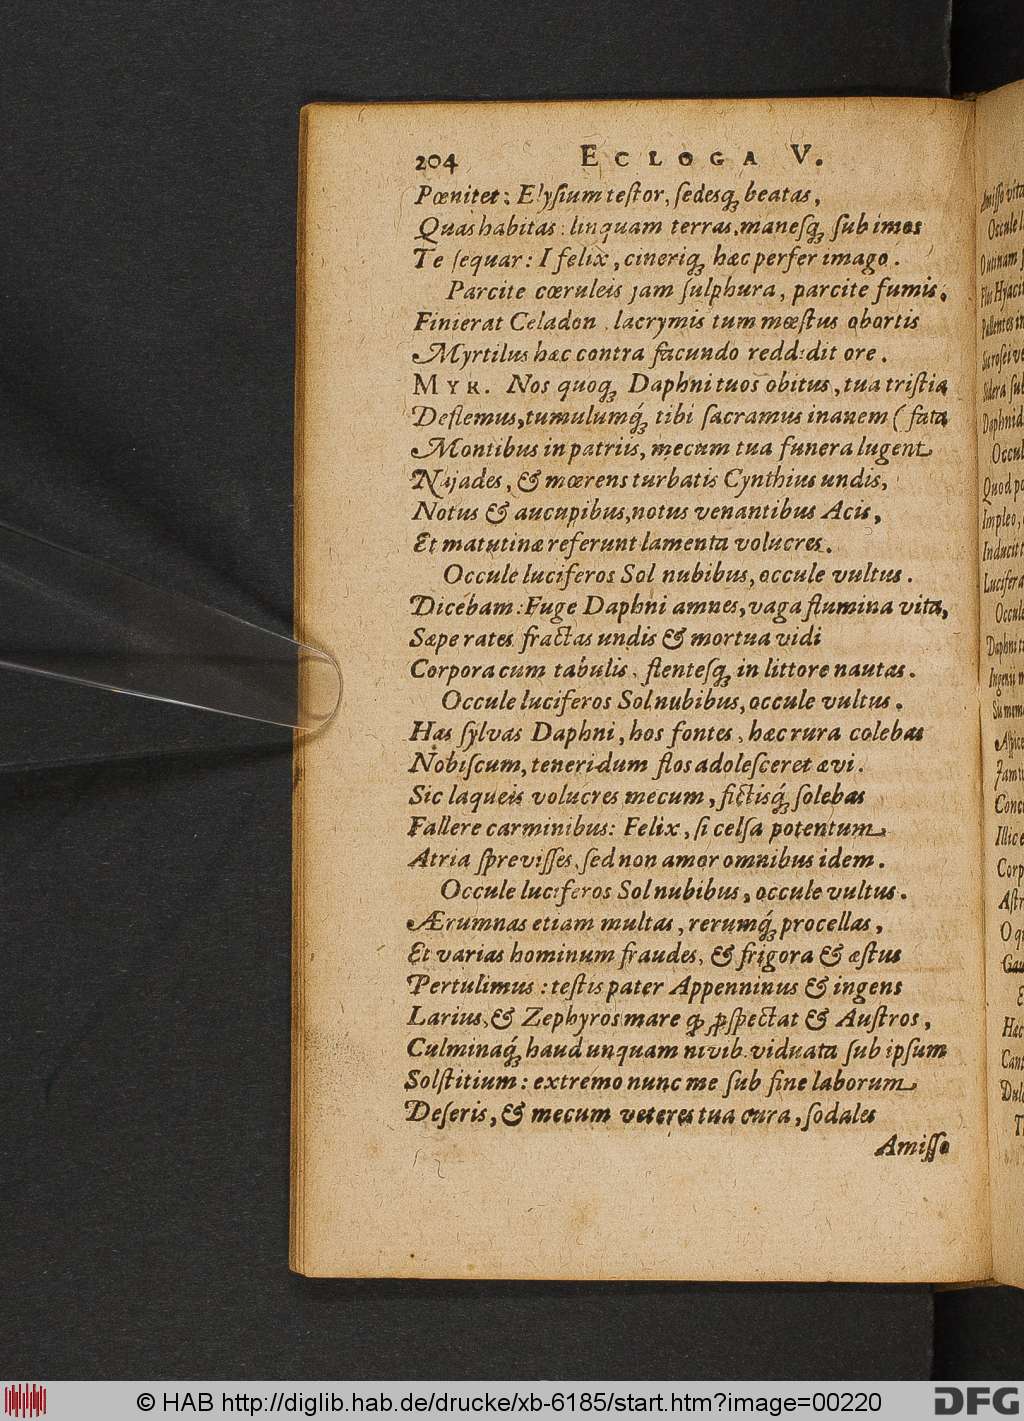 204 ECLOGA V.
Pœnitet: Elysium teſtor, ſedesq́; beatas,
Quas habitas: linquam terras, maneſq́; ſub imos
Te ſequar: I felix, cineriq́; hæc perfer imago.
Parcite cœruleis jam ſulphura, parcite fumis.
Finierat Celadon, lacrymis tum mœſtus obortis
Myrtilus hæc contra facundo reddidit ore.
MYR. Nos quoq; Daphni tuos obitus, tua triſtia
Deflemus, tumulumq́; tibi ſacramus inanem (fata
Montibus in patriis, mecum tua funera lugent
Najades, & mœrens turbatis Cynthius undis,
Notus & aucupibus, notus venantibus Acis,
Et matutinæ referunt lamenta volucres.
Occule luciferos Sol nubibus, occule vultus.
Dicebam: Fuge Daphni amnes, vaga flumina vita,
Sæpe rates fractas undis & mortua vidi
Corpora cum tabulis, flentesq́; in littore nautas.
Occule luciferos Sol nubibus, occule vultus.
Has ſylvas Daphni, hos fontes, hæc rura colebas
Nobiſcum, teneri dum flos adoleſceret ævi.
Sic laqueis volucres mecum, fictisq́; ſolebas
Fallere carminibus: Felix, ſi celſa potentum
Atria ſpreviſſes, ſed non amor omnibus idem.
Occule luciferos Sol nubibus, occule vultus.
Ærumnas etiam multas, rerumq́; procellas,
Et varias hominum fraudes, & frigora & æſtus
Pertulimus: teſtis pater Appenninus & ingens
Larius, & Zephyros mare ꝙ ꝓſpectat & Auſtros,
Culminaq́; haud unquam nivib. viduata ſub ipſum
Solſtitium: extremo nunc me ſub fine laborum
Deſeris, & mecum veteres tua cura, ſodales
Amiſſo
© HAB http://diglib.hab.de/drucke/xb-6185/start.htm?image=00220
DFG